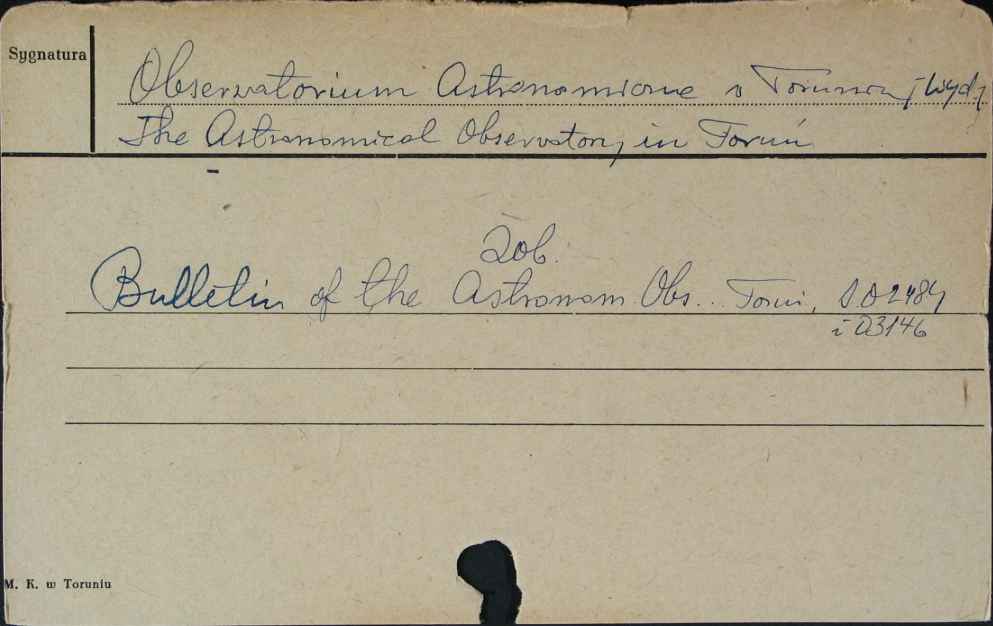 Sygnatura
Obserwatorium Astronomiczne w Toruniu, Wyd.
The Astronomical Observatory in Toruń
Zob.
Bulletin of the Astronom Obs.. Toruń,
i D3146
M. K. w Toruniu